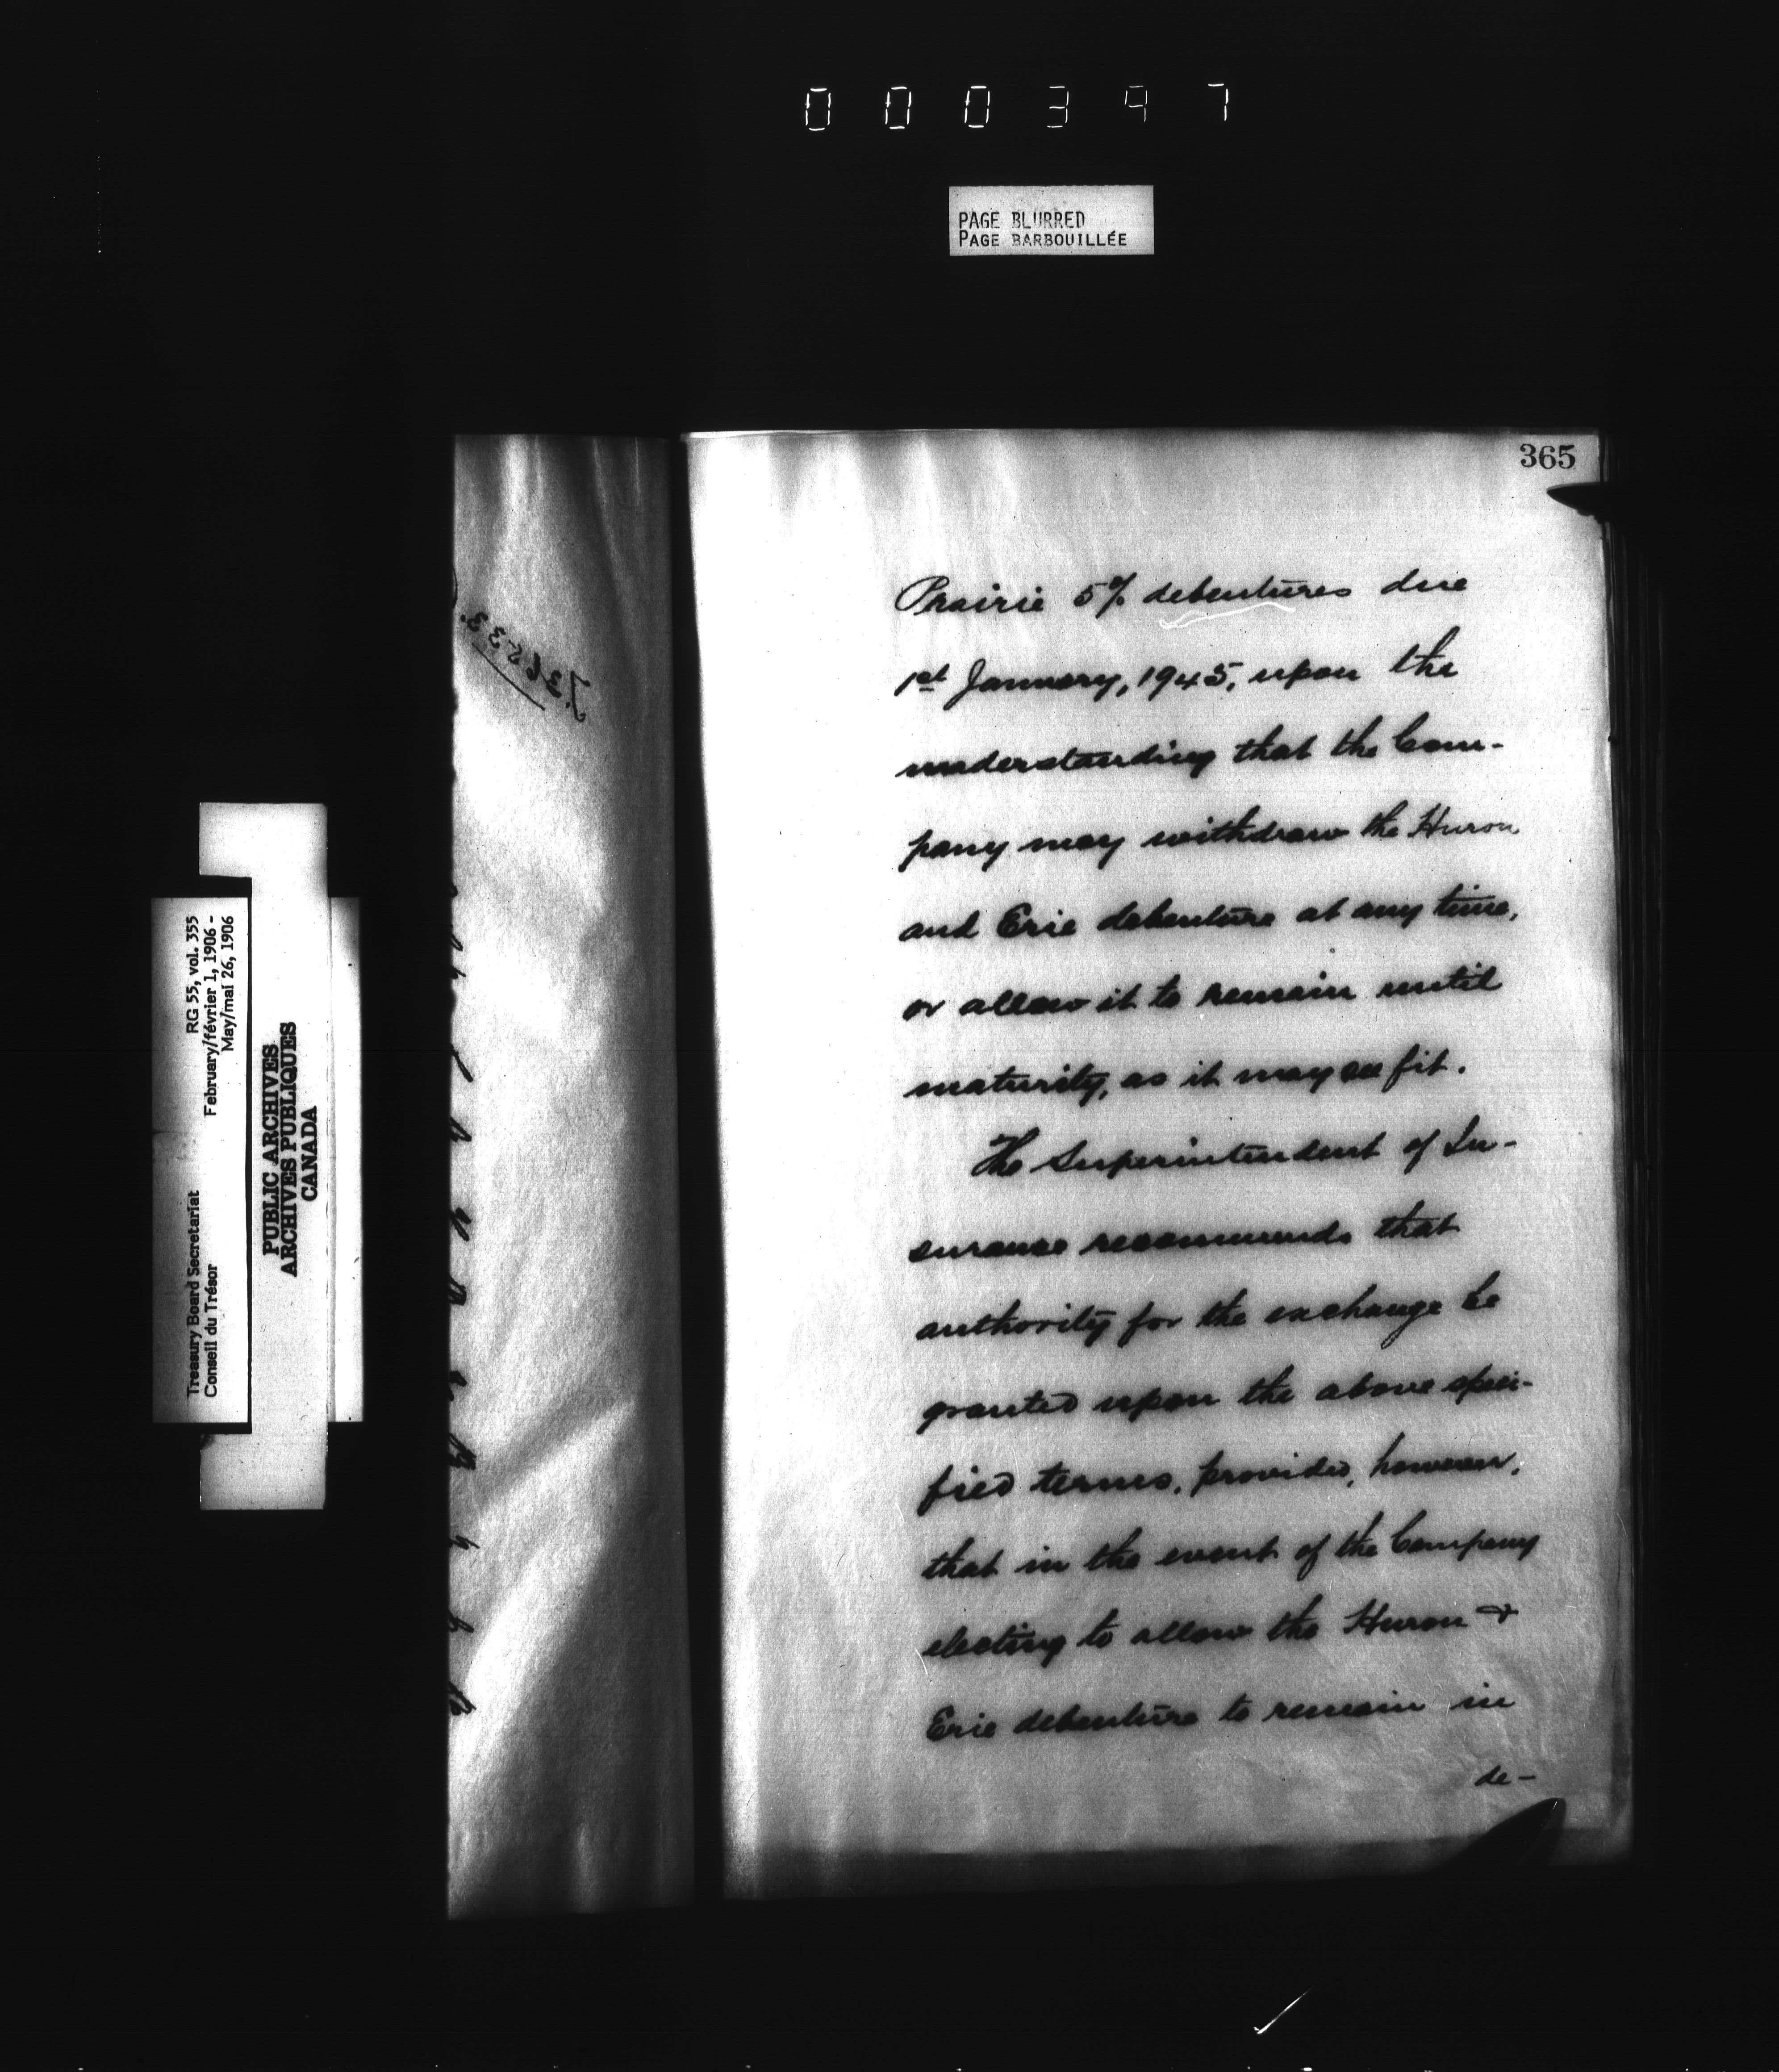 000397
PAGE BLURRED
PAGE BARBOUILLÉE
365
Prairie 5% debentures due
1st January, 1945, upon the
understanding that the Com-
pany may withdraw the Huron
and Erie debenture at any time,
or allow it to remain until
maturity, as it may see fit.
The Superintendent of In-
surance recommends that
authority for the exchange be
granted upon the above speci-
fied terms, provided, however,
that in the event of the Company
electing to allow the Huron &
Erie debenture to remain in
de-
Treasury Board Secretariat RG 55, vol. 355
Conseil du Trésor February/février 1, 1906 -
May/mai 26, 1906
PUBLIC ARCHIVES
ARCHIVES PUBLIQUES
CANADA